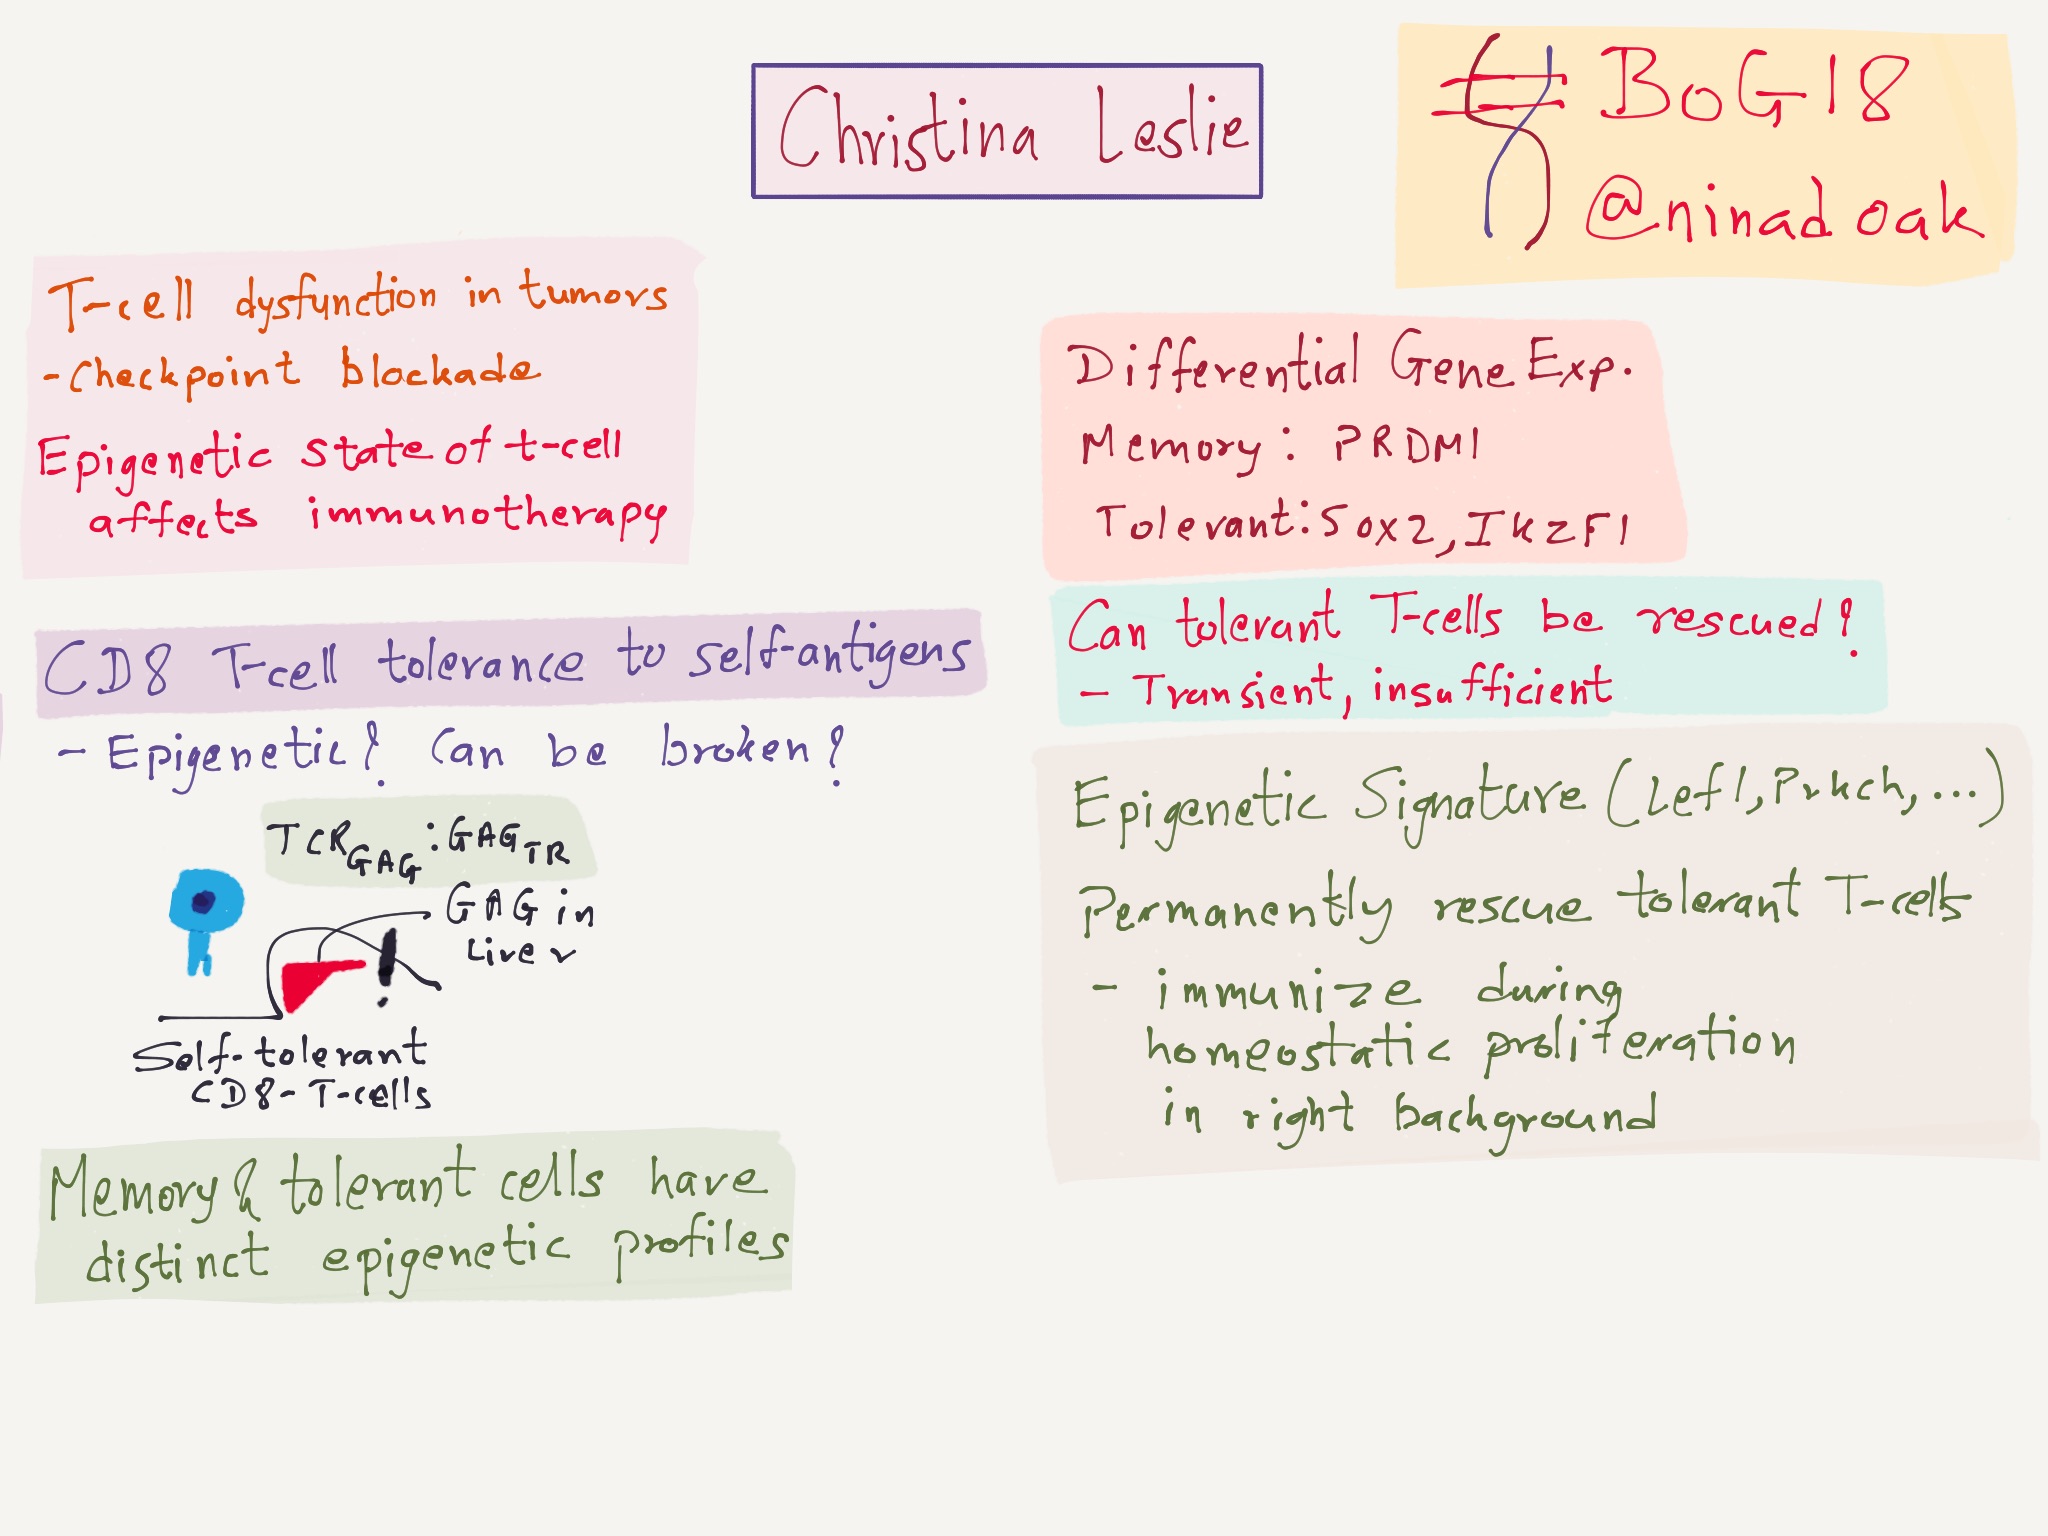 Christina Leslie
#BoG18
@ninadoak
T-cell dysfunction in tumors
- Checkpoint blockade
Epigenetic state of t-cell
affects immunotherapy
CD8 T-cell tolerance to self-antigens
- Epigenetic? Can be broken?
TCR GAG : GAG TR
GAG in
Liver
Self-tolerant
CD8-T-cells
Memory & tolerant cells have
distinct epigenetic profiles
Differential Gene Exp.
Memory: PRDM1
Tolerant: Sox2, IKZF1
Can tolerant T-cells be rescued?
- Transient, insufficient
Epigenetic Signature (Lef1, Prkch, ...)
Permanently rescue tolerant T-cells
- immunize during
homeostatic proliferation
in right background